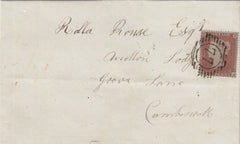 Rolla Rouse Esqr
Lodge
Grove Lane
Camberwell